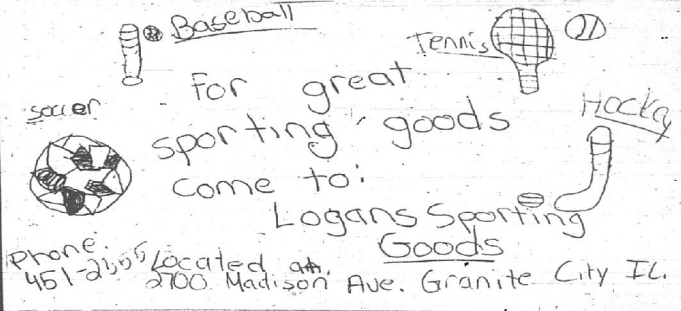 Baseball
Tennis
For great
soccer
Hockey
sporting goods
come to:
Logans Sporting
Goods
Phone.
Located at.
2700 Madison Ave. Granite City IL.